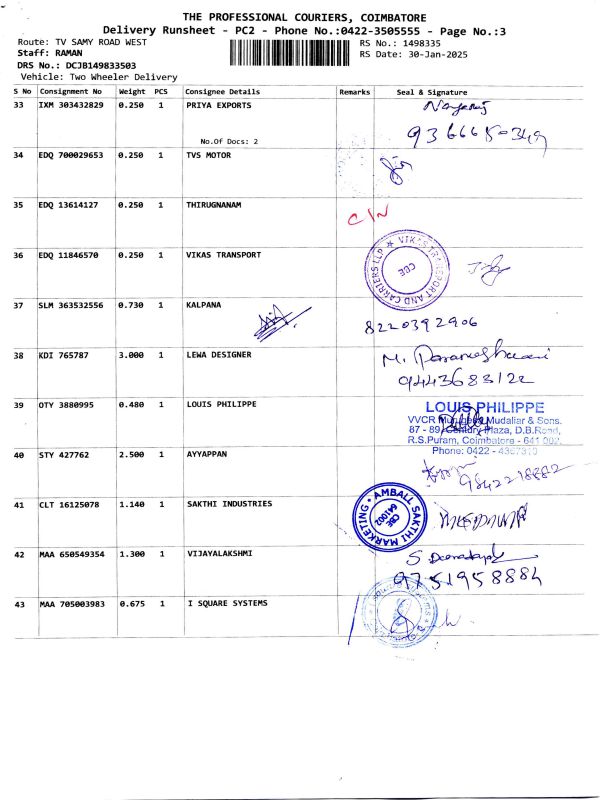 THE PROFESSIONAL COURIERS, COIMBATORE
Delivery Runsheet - PC2 - Phone No.:0422-3505555 - Page No.:3
Route: TV SAMY ROAD WEST
RS No.: 1498335
Staff: RAMAN
RS Date: 30-Jan-2025
DRS No.: DCJB149833503
Vehicle: Two Wheeler Delivery
S No Consignment No Weight PCS Consignee Details Remarks Seal & Signature
33 IXM 303432829 0.250 1 PRIYA EXPORTS
No.Of Docs: 2
34 EDQ 700029653 0.250 1 TVS MOTOR
35 EDQ 13614127 0.250 1 THIRUGNANAM
C/N
36 EDQ 11846570 0.250 1 VIKAS TRANSPORT
VIKAS TRANSPORT AND CARRIERS LLP
CBE
37 SLM 363532556 0.730 1 KALPANA
8220392906
38 KDI 765787 3.000 1 LEWA DESIGNER
9443683122
39 OTY 3880995 0.480 1 LOUIS PHILIPPE
LOUIS PHILIPPE
VVCR Mudaliar & Sons.
87 - 89, Century Plaza, D.B.Road,
R.S.Puram, Coimbatore - 641 002.
Phone: 0422 -
40 STY 427762 2.500 1 AYYAPPAN
9842218882
41 CLT 16125078 1.140 1 SAKTHI INDUSTRIES
AMBALL SAKTHI MARKETING
CBE
641002
42 MAA 650549354 1.300 1 VIJAYALAKSHMI
9751958884
43 MAA 705003983 0.675 1 I SQUARE SYSTEMS